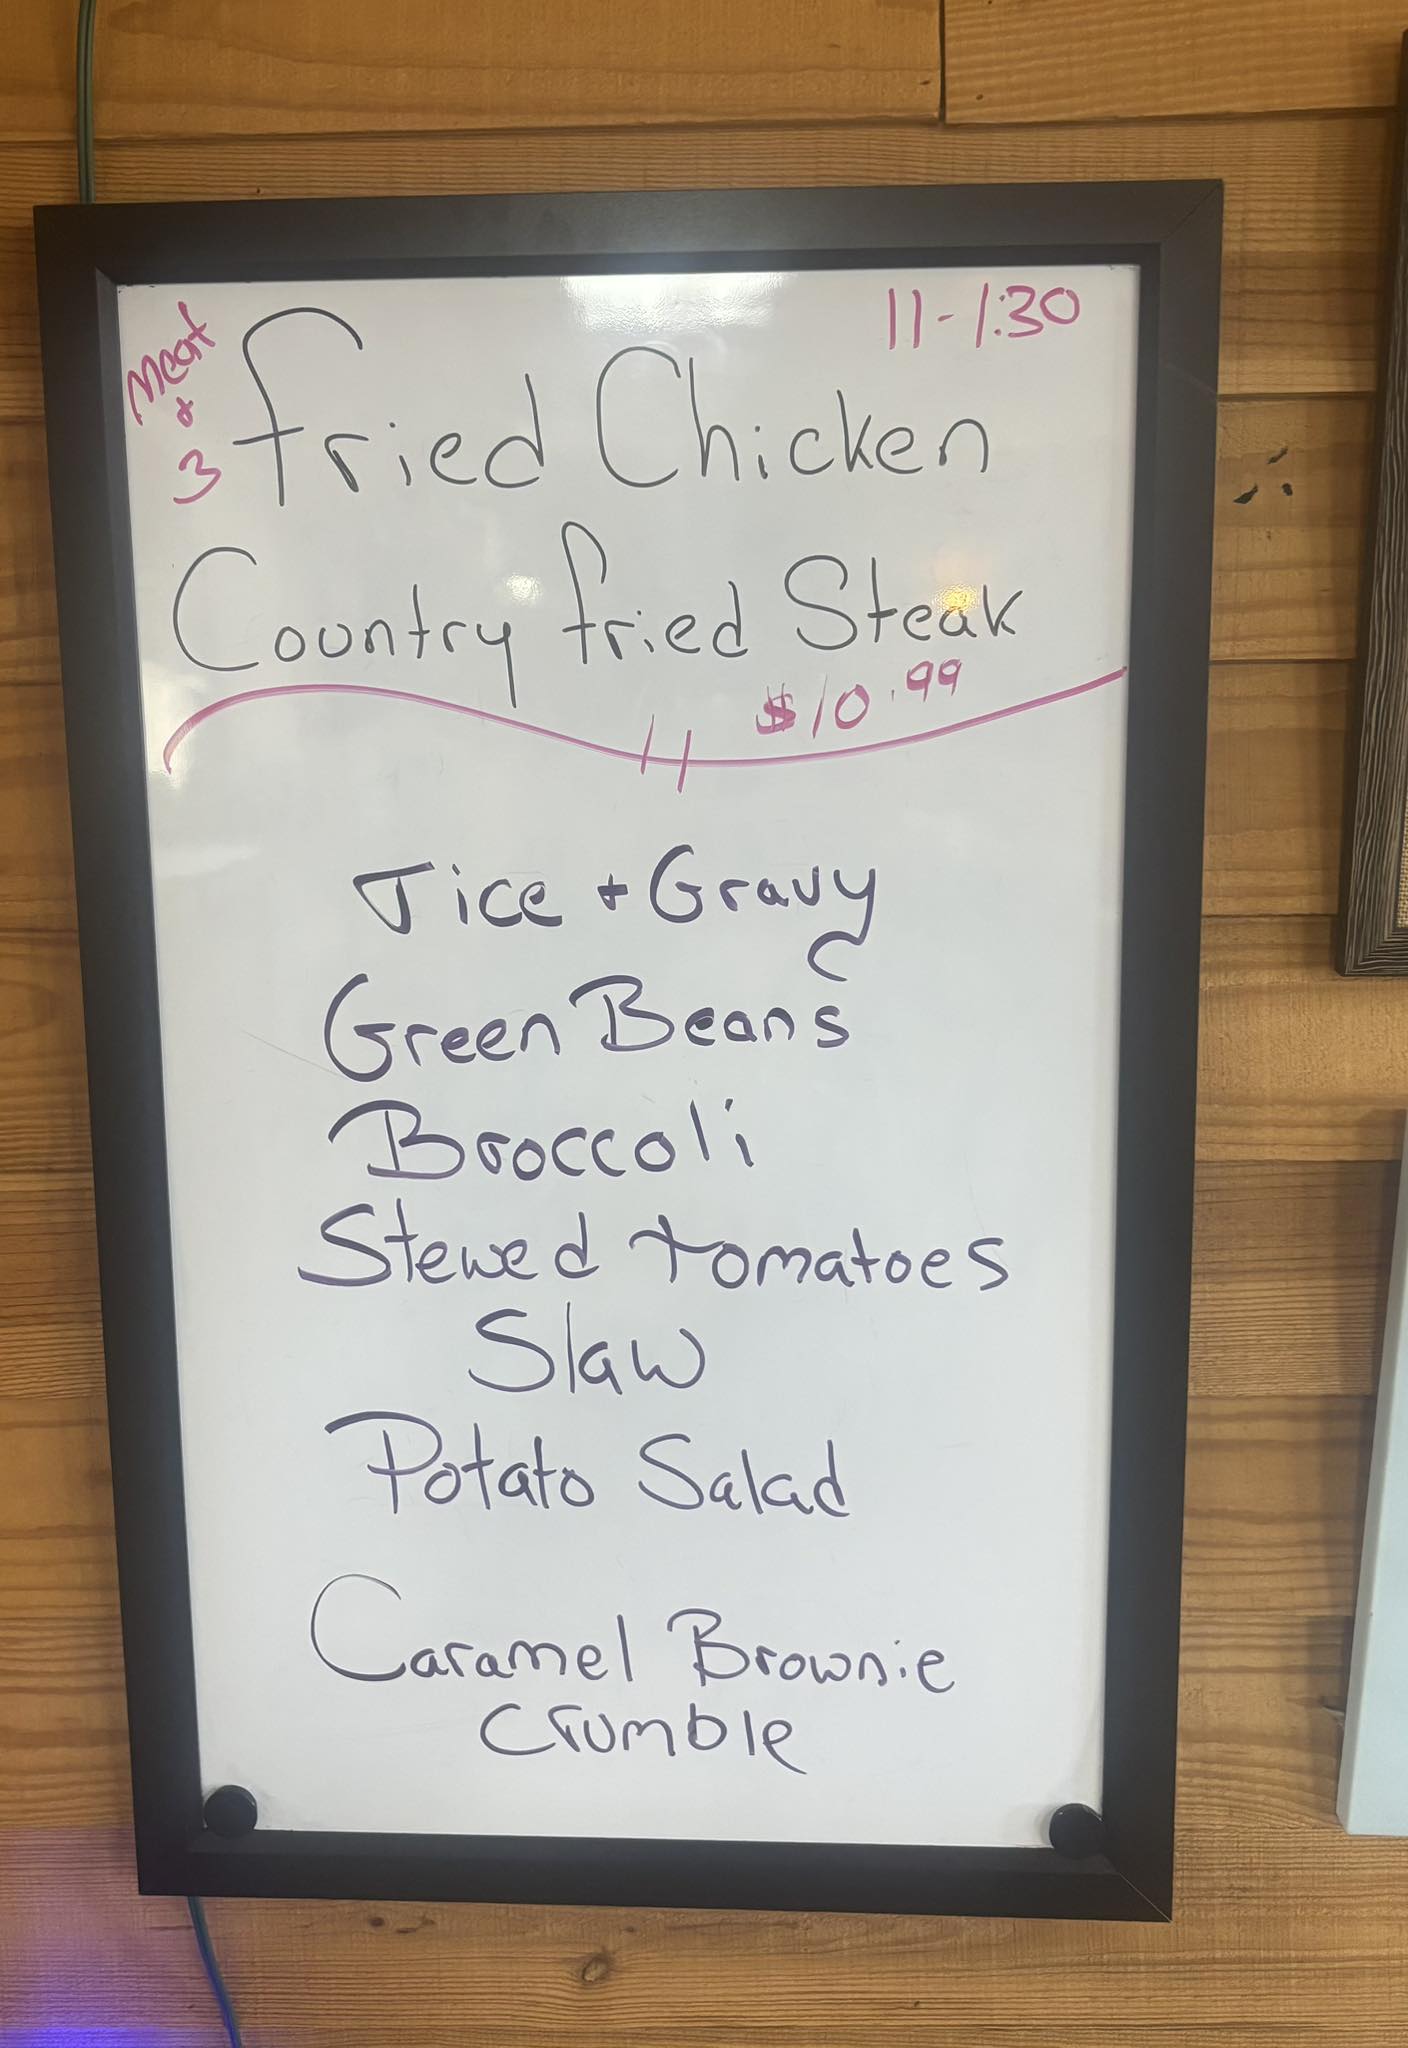 Meat
+
3
11-1:30
fried Chicken
Country fried Steak
$10.99
Rice + Gravy
Green Beans
Broccoli
Stewed tomatoes
Slaw
Potato Salad
Caramel Brownie
Crumble